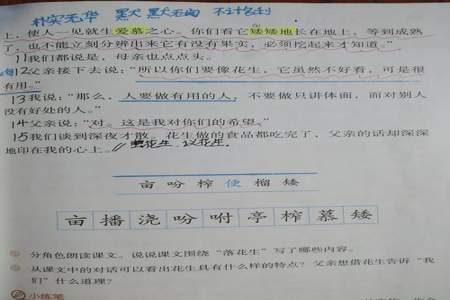 朴实无华 默默无闻 不计名利
上，使人一见就生爱慕之心。你们看它矮矮地长在地上，等到成熟
了，也不能立刻分辨出来它有没有果实，必须挖起来才知道。”
11我们都说是，母亲也点点头。
12父亲接下去说：“所以你们要像花生，它虽然不好看，可是很
有用。”
13我说：“那么，人要做有用的人，不要做只讲体面，而对别人
没有好处的人。”
14父亲说：“对。这是我对你们的希望。”
15我们谈到深夜才散。花生做的食品都吃完了，父亲的话却深深
地印在我的心上。
议花生
亩 吩 榨 便 榴 矮
亩 播 浇 吩 咐 亭 榨 慕 矮
分角色朗读课文。说说课文围绕“落花生”写了哪些内容。
从课文中的对话可以看出花生具有什么样的特点？父亲想借花生告诉“我
们”什么道理？
小练笔